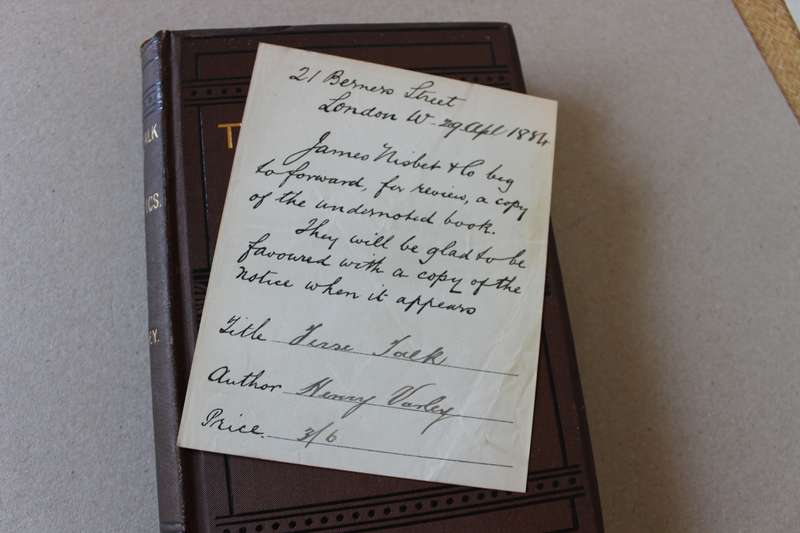 21 Berners Street
London W. 29 Apl 1884
James Nisbet & Co beg
to forward, for review, a copy
of the undernoted book.
They will be glad to be
favoured with a copy of the
notice when it appears
Title Terse Talk
Author Henry Varley
Price. 3/6
T
ALK
ICS.
EY.